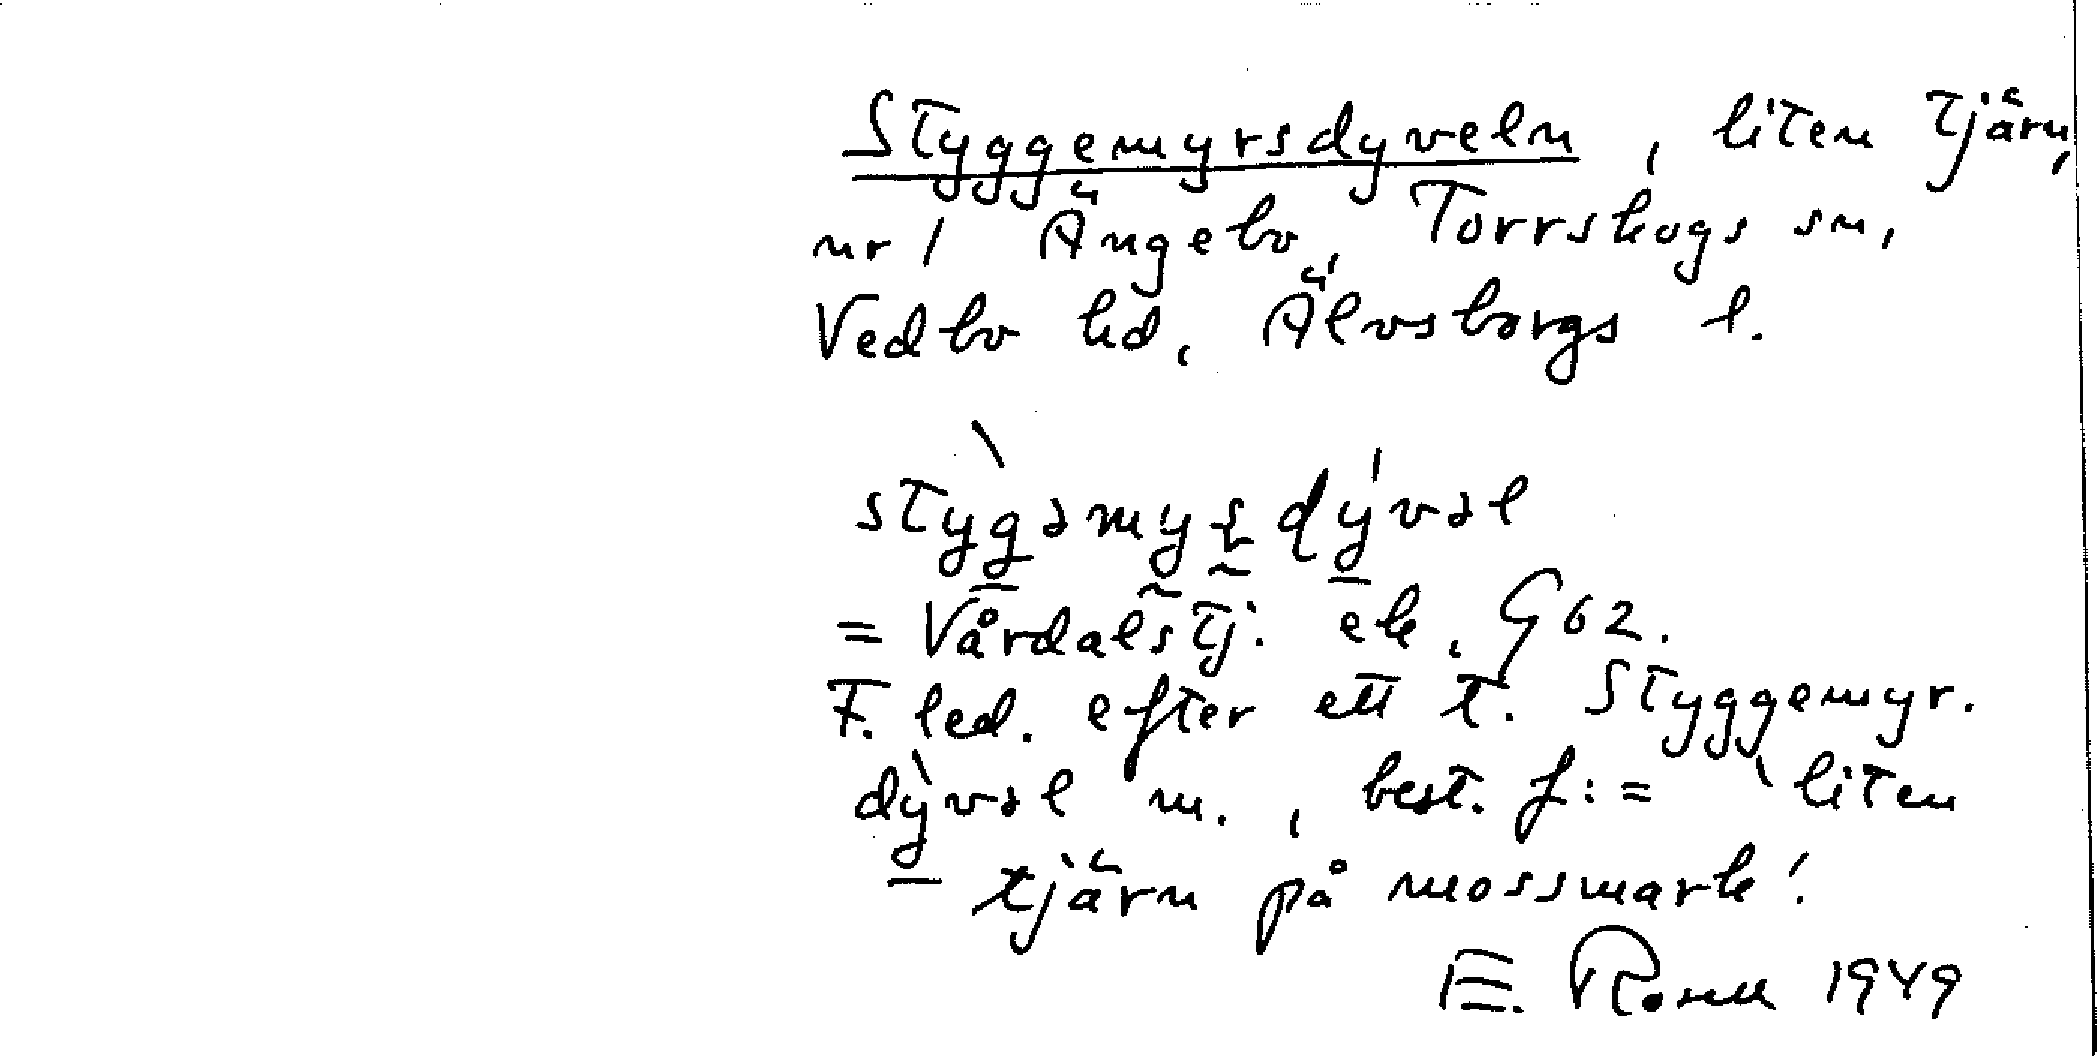 Styggemyrsdyveln, liten tjärn,
nr 1 Ängebo, Torrskogs sn,
Vedbo hd, Älvsborgs l.
= Vårdalstj. ek. G62.
F. led. efter ett t. Styggemyr.
dỳvəl m., best. f: = 'liten
tjärn på mossmark'.
E. 1949